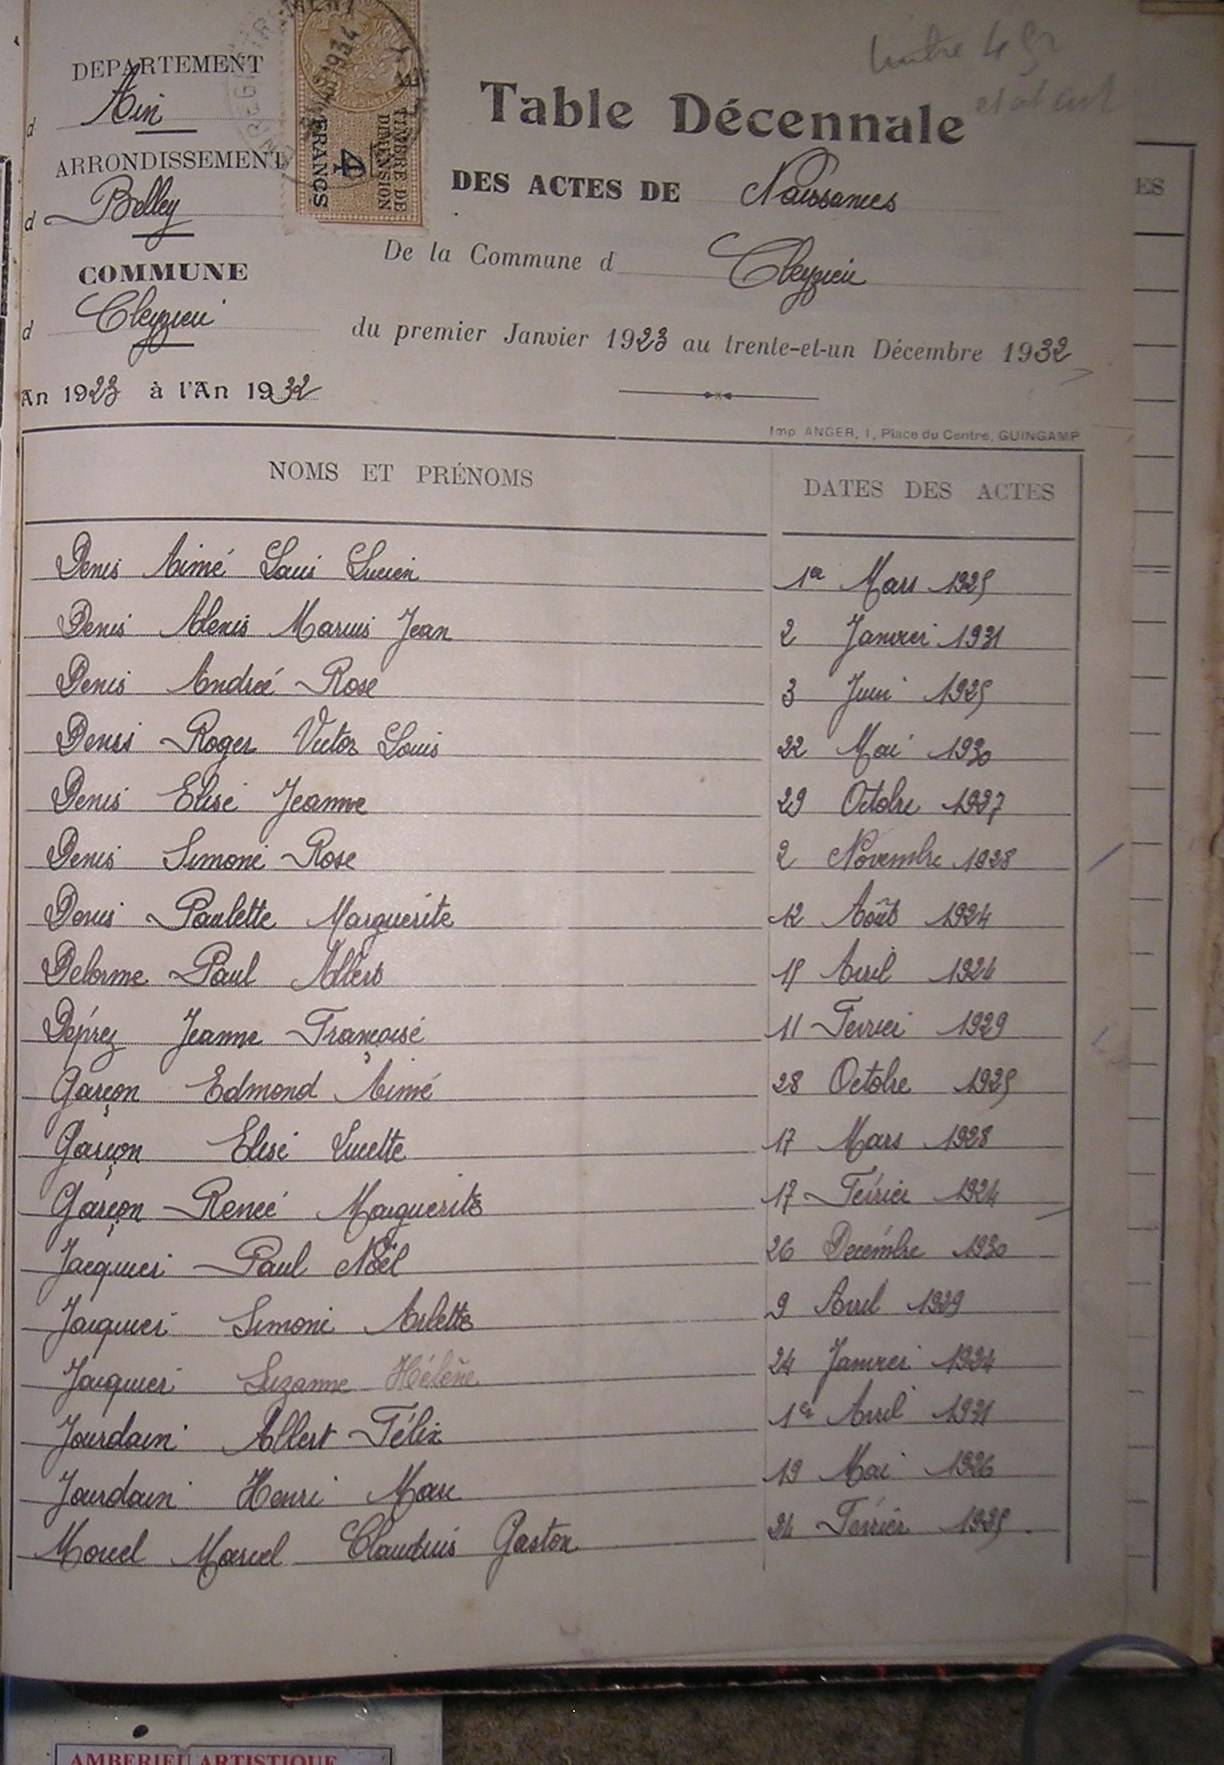 DEPARTEMENT
d Ain
ARRONDISSEMENT
d Belley
COMMUNE
d Cleyzieu
An 1923 à l'An 1932
1934
TIMBRE DE
DIMENSION
4
FRANCS
Table Décennale
DES ACTES DE Naissances
De la Commune d Cleyzieu
du premier Janvier 1923 au trente-et-un Décembre 1932
Imp. ANGER, 1, Place du Centre, GUINGAMP
NOMS ET PRÉNOMS DATES DES ACTES
Denis Aimé Louis Lucien 1er Mars 1925
Denis Alexis Marius Jean 2 Janvier 1931
Denis Andreé Rose 3 Juin 1925
Denis Roger Victor Louis 22 Mai 1930
Denis Elise Jeanne 29 Octobre 1927
Denis Simone Rose 2 Novembre 1928
Denis Paulette Marguerite 12 Août 1924
Delorme Paul Albert 15 Avril 1924
Déprez Jeanne Françoise 11 Fevrier 1929
Garçon Edmond Aimé 28 Octobre 1925
Garçon Elise Lucette 17 Mars 1928
Garçon Reneé Marguerite 17 Février 1924
Jacquier Paul Noël 26 Decémbre 1930
Jacquier Simone Arlette 9 Avril 1929
Jacquier Suzanne Hélène 24 Janvier 1924
Jourdain Albert Félix 1er Avril 1931
Jourdain Henri Marc 19 Mai 1926
Morcel Marcel Claudius Gaston 24 Février 1925
ES
AMBERIEU ARTISTIQUE